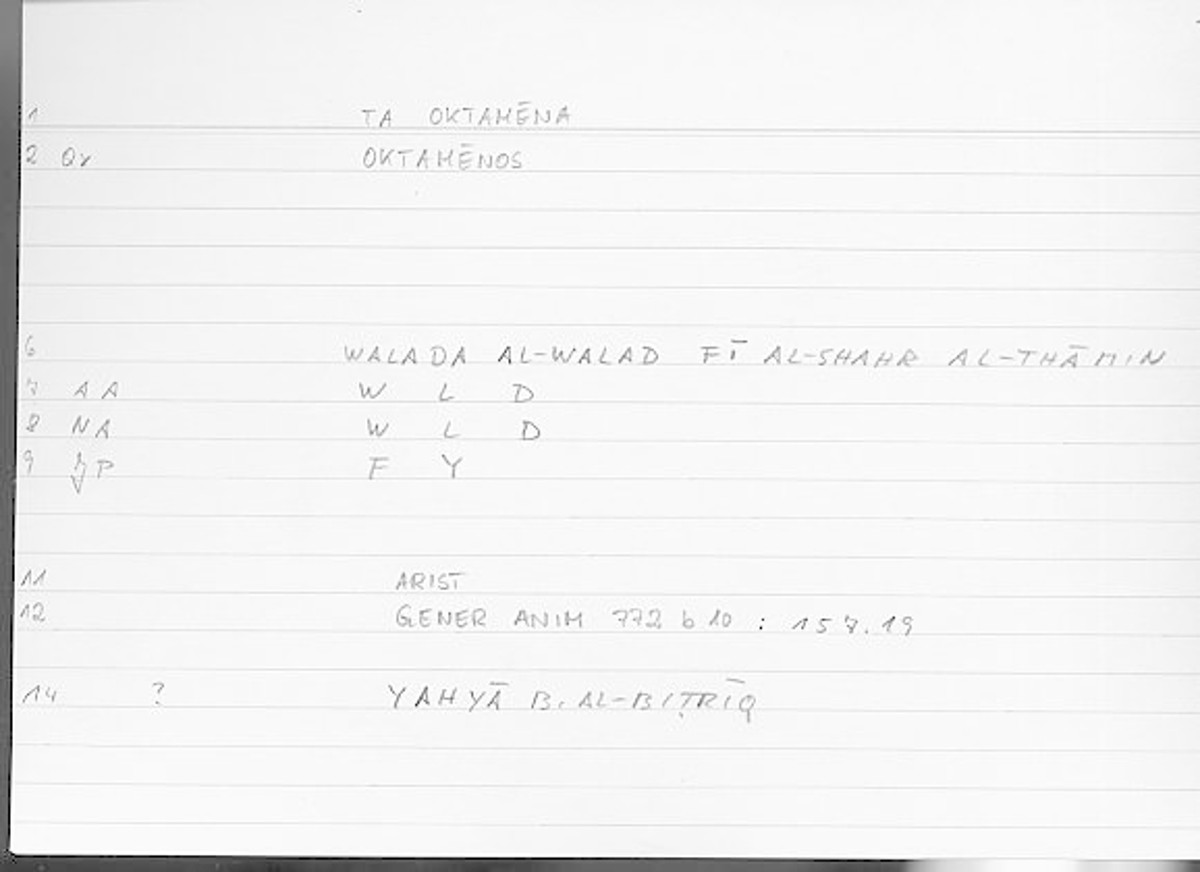 1 TA OKTAMĒNA
2 Qr OKTAMĒNOS
6 WALADA AL-WALAD FĪ AL-SHAHR AL-THĀMIN
7 AA W L D
8 NA W L D
9 P F Y
11 ARIST
12 GENER ANIM 772 b 10 : 157.19
14 ? YAHYĀ B. AL-BIṬRĪQ